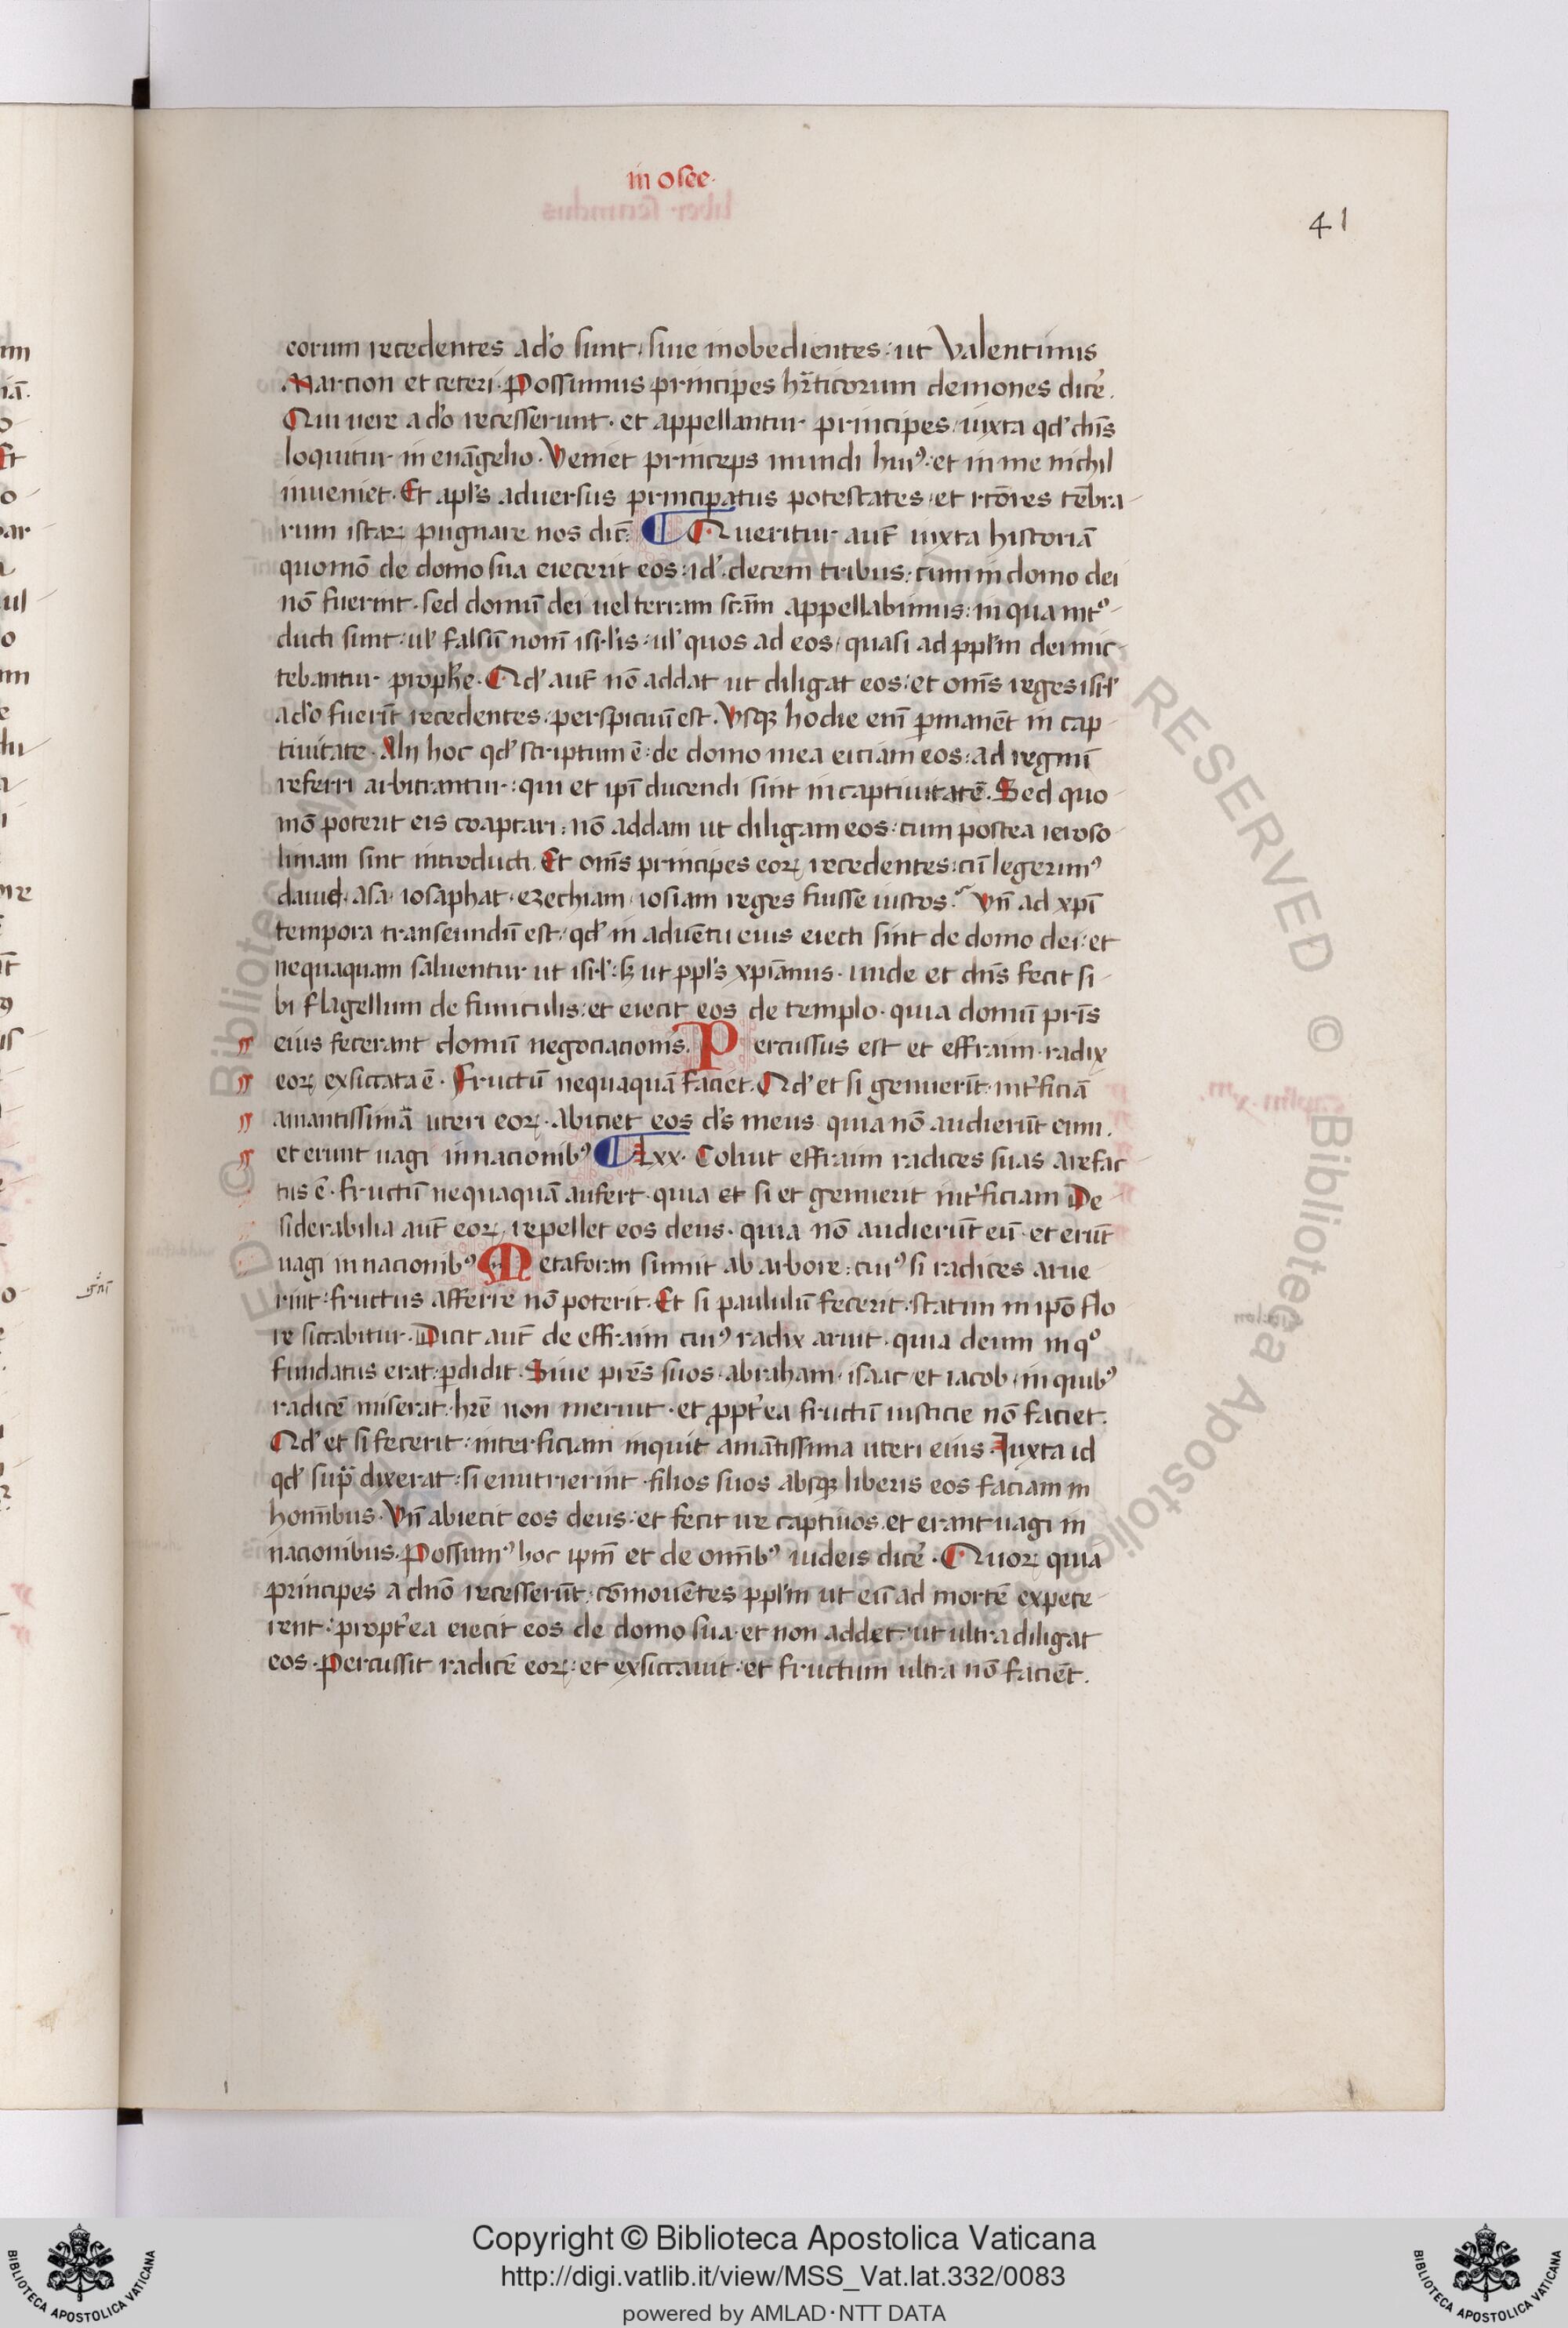 in osee.
41
eorum recedentes a do sunt. siue inobedientes. ut Valentinus
Marcion et ceteri. Possumus principes hr̄ticorum demones dicē.
Qui uere a do recesserunt. et appellantur principes iuxta qd' dn̄s
loquitur in euāgelio. Veniet princeps mundi huiꝰ: et in me nichil
inueniet. Et apl's aduersus principatus potestates. et rc̄ores tēbra
rum istaꝝ pugnare nos dic̄. Queritur aut̄ iuxta historiā
quomō de domo sua eiecerit eos. id'. decem tribus. cum in domo dei
nō fuerint. sed domū dei uel terram scām appellabimus: in qua intͦ
ducti sunt: ul' falsū nom̄ isrl'is: ul' quos ad eos quasi ad ppl'm dei mit
tebantur prophe. Qd' aut̄ nō addat ut diligat eos: et om̄s reges isrl'
a do fuerīt recedentes. perspicuū est. Vsqꝫ hodie eni̅ ꝑmanēt in cap
tiuitate. Alij hoc qd' scriptum ē: de domo mea eiciam eos: ad regnū
referri arbitrantur: qui et ip̄i ducendi sint in captiuitatē. Sed quo
mō poterit eis coaptari: nō addam ut diligam eos: cum postea ieroso
limam sint introducti. Et om̄s principes eoꝝ recedentes: cū legerimꝰ
dauid. asa. iosaphat. ezechiam. iosiam reges fuisse iustos. Vn̄ ad xp̄i
tempora transeundū est. qd' in aduētu eius eiecti sint de domo dei: et
nequaquam saluentur ut isrl': sꝫ ut ppl's xp̄ianus. unde et dn̄s fecit si
bi flagellum de funiculis: et eiecit eos de templo. quia domū pr̄is
eius fecerant domū negociacionis. Percussus est et effraim. radix
eoꝝ exsiccata ē. Fructū nequaquā faciet. Qd' et si genuerīt. int'ficiā
amantissima uteri eoꝝ. abiciet eos d's meus quia nō audierūt eum.
et erunt uagi in nacionibꝰ Lxx. Coluit effraim radices suas arefac
tus ē. fructū nequaquā aufert. quia et si et genuerit int'ficiam De
siderabilia aut̄ eoꝝ, repellet eos deus. quia nō audierūt eū. et erūt
uagi in nacionibꝰ Metaforam sumit ab arbore: cuiꝰ si radices arue
rint: fructus afferre nō poterit. Et si paululū fecerit. statim in ip̄o flo
re siccabitur. Dicit aut̄ de effraim cuiꝰ radix aruit. quia deum in qͦ
fundatus erat: ꝑdidit. Siue pr̄es suos. abraham. isaac et iacob. in quibꝰ
radicē miserat. hr̄e non meruit. et ꝓpt'ea fructū iusticie nō faciet.
Qd' et si fecerit: interficiam inquit amātissima uteri eius. Iuxta id
qd' supͣ dixerat: si enutrierint filios suos absqꝫ liberis eos faciam in
hom̄ibus. Vn̄ abiecit eos deus: et fecit ire captiuos. et erant uagi in
nacionibus. Possumꝰ hoc ip̄m et de om̄ibꝰ iudeis dicē. Quoꝝ quia
principes a dn̄o recesserūt. cōmouētes ppl'm ut eū ad mortē expete
rent: propt'ea eiecit eos de domo sua. et non addet. ut ultra diligat
eos. Percussit radicē eoꝝ: et exsiccauit. et fructum ultra nō faciēt.
Copyright © Biblioteca Apostolica Vaticana
http://digi.vatlib.it/view/MSS_Vat.lat.332/0083
powered by AMLAD·NTT DATA
BIBLIOTECA APOSTOLICA VATICANA
BIBLIOTECA APOSTOLICA VATICANA